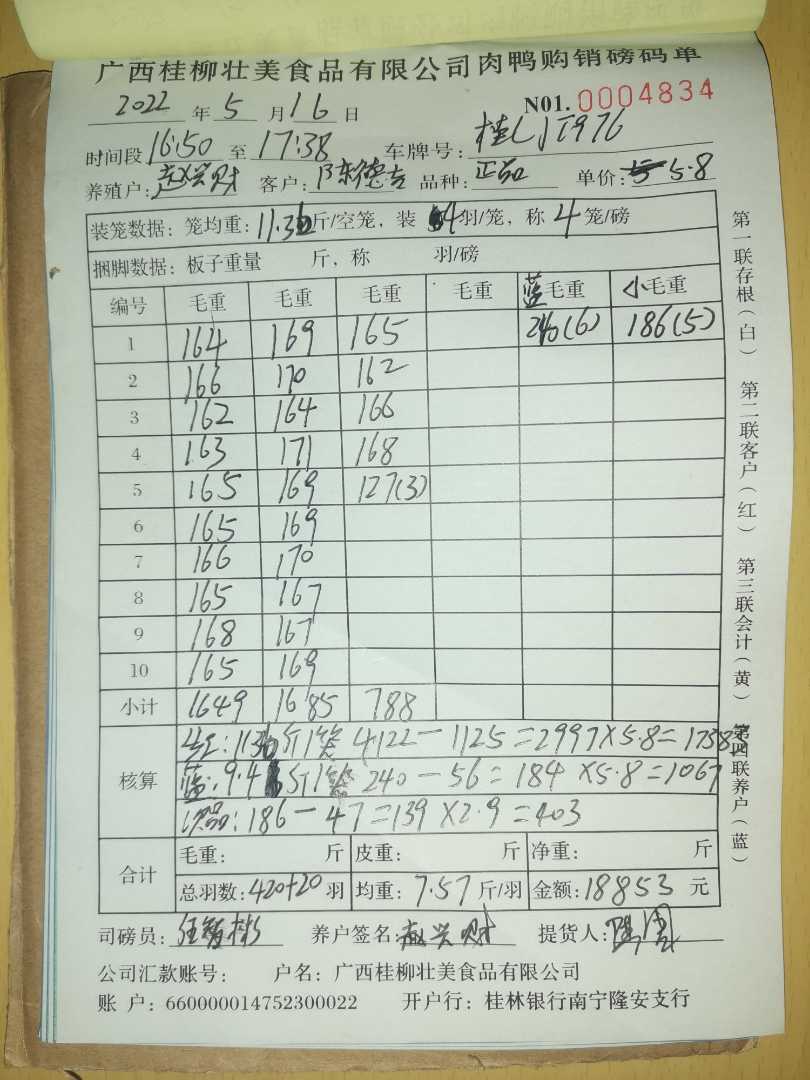 广西桂柳壮美食品有限公司肉鸭购销磅码单
2022 年 5 月 16 日 N01. 0004834
时间段 16:50 至 17:38 车牌号:
养殖户: 赵兴财 客户: 陈德吉 品种: 正品 单价: 5.8
装笼数据: 笼均重: 11.36 斤/空笼, 装 4 羽/笼, 称 4 笼/磅
捆脚数据: 板子重量 斤, 称 羽/磅
编号 毛重 毛重 毛重 毛重 蓝毛重 小毛重
1 164 169 165 240(6) 186(5)
2 166 170 162
3 162 164 166
4 163 171 168
5 165 169 127(3)
6 165 169
7 166 170
8 165 167
9 168 167
10 165 169
小计 1649 1685 788
核算
斤/笼 4122-1125=2997×5.8=17383
蓝: 9.4 斤/笼 240-56=184×5.8=1067
次品: 186-47=139×2.9=403
合计 毛重: 斤 皮重: 斤 净重: 斤
总羽数: 420+20 羽 均重: 7.57 斤/羽 金额: 18853 元
司磅员: 养户签名: 赵兴财 提货人:
公司汇款账号: 户名: 广西桂柳壮美食品有限公司
账 户: 660000014752300022 开户行: 桂林银行南宁隆安支行
第一联存根(白) 第二联客户(红) 第三联会计(黄) 第四联养户(蓝)